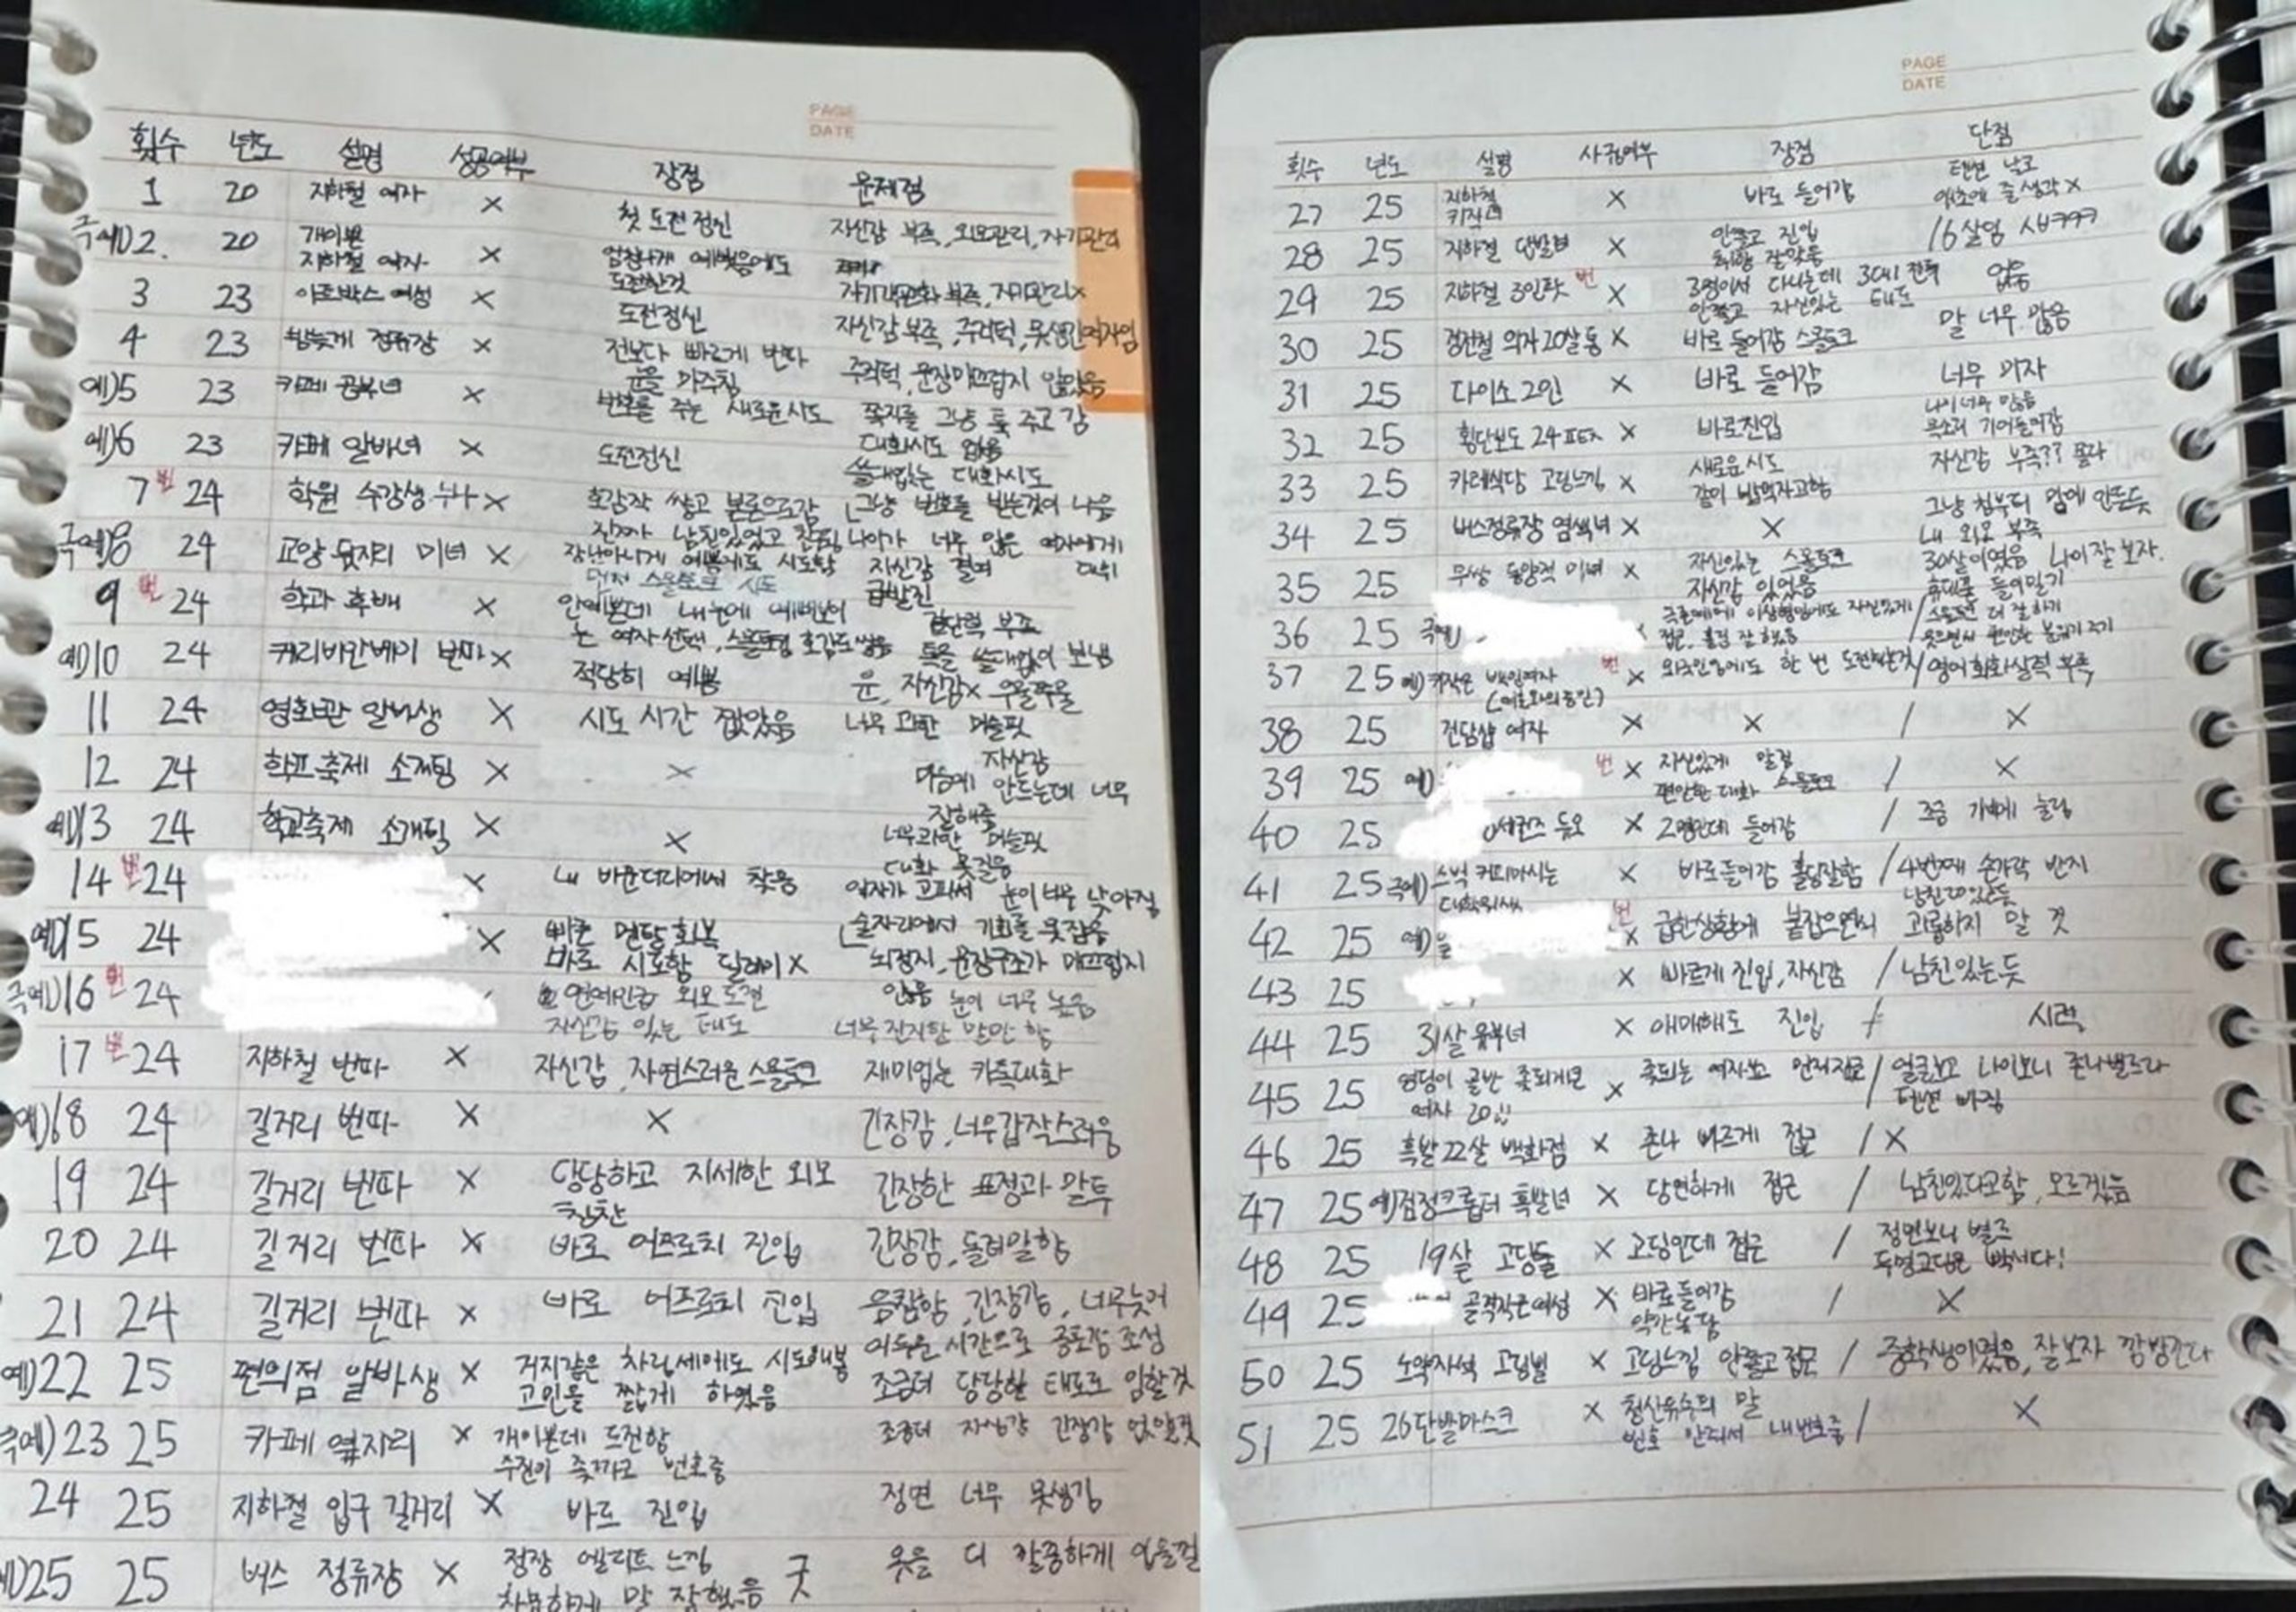 PAGE
DATE
횟수 년도 설명 성공여부 장점 문제점
1 20 지하철 여자 × 첫 도전정신 자신감 부족, 외모관리, 자기관리
극예)2. 20 개이쁜 지하철 여자 × 엄청나게 예뻤음에도 도전한것
3 23 아트박스 여성 × 도전정신 부족, 자기관리×
4 23 밤늦게 정류장 × 전보다 빠르게 번따 눈을 마주침 자신감 부족, 주걱턱, 못생긴여자임
예)5 23 카페 공부녀 × 번호를 주는 새로운시도 주걱턱, 문장매끄럽지 않았음 쪽지를 그냥 툭 주고 감
예)6 23 카페 알바녀 × 도전정신 대화시도 없음
7 번 24 학원 수강생 누나 × 호감작 쌓고 본론으로감 쓸데없는 대화시도 그냥 번호를 받는것이 나음
극예)8 24 고양 옆자리 미녀 × 장난아니게 예쁨에도 시도함 먼저 스몰토크 시도 나이가 너무 많은 여자에게 대쉬 자신감 결여
9 번 24 학과 후배 × 안예쁜데 내눈에 예뻐보이는 여자 선택, 스몰토크 호감도 쌓음 급발진 결단력 부족
예)10 24 캐리비안베이 번따 × 적당히 예쁨 톡을 쓸데없이 보냄 자신감× 우물쭈물
11 24 영화관 알바생 × 시도 시간 짧았음 너무 과한 머슬핏
12 24 학교축제 소개팅 × × 자신감 마음에 안드는데 너무 잘해줌
예)13 24 학교축제 소개팅 × × 너무과한 머슬핏 대화 못질음
14 번 24 × 내 바운더리에서 착용 여자가 고파서 눈이 너무 낮아짐 술자리에서 기회를 못잡음
예)15 24 × 빠른 멘탈 회복 바로 시도함 딜레이× 뇌정지, 문장구조가 매끄럽지 않음
극예)16 번 24 연예인급 외모 도전 자신감 있는 태도 눈이 너무 높음 너무 진지한 말만 함
17 번 24 지하철 번따 × 자신감, 자연스러운 스몰토크 재미없는 카톡대화
예)18 24 길거리 번따 × × 긴장감, 너무갑작스러움
19 24 길거리 번따 × 당당하고 자세한 외모 칭찬 긴장한 표정과 말투
20 24 길거리 번따 × 바로 어프로치 진입 긴장감, 돌려말함
21 24 길거리 번따 × 바로 어프로치 진입 음침함, 긴장감, 너무늦어 어두운 시간으로 공포감 조성
예)22 25 편의점 알바생 × 거지같은 차림새에도 시도해봄 고민을 짧게 하였음 조금더 당당한 태도로 임할것
극예)23 25 카페 옆자리 × 개이쁜데 도전함 번호줌 조금더 자신감 긴장감 없앨것
24 25 지하철 입구 길거리 × 바로 진입 정면 너무 못생김
예)25 25 버스 정류장 × 정장 엘리트 느낌 차분하게 말 잘했음 굿 옷을 더 깔끔하게 입을걸
PAGE
DATE
횟수 년도 설명 사귐여부 장점 단점
27 25 지하철 키작녀 × 바로 들어감 텐션 낮고 애초에 줄 생각×
28 25 지하철 단발녀 × 안쫄고 진입 취향 잘맞음 16살임 시바ㅋㅋㅋ
29 25 지하철 3인팟 번 × 3명이서 다니는데 3대1 전투 안쫄고 자신있는 태도 없음
30 25 경전철 의자 20살 통 × 바로 들어감 스몰토크 말 너무 많음
31 25 다이소 2인 × 바로 들어감 너무 미자
32 25 횡단보도 24 × 바로진입 나이너무 많음 목소리 기어들어감
33 25 카레식당 고딩느낌 × 새로운시도 같이 밥먹자고함 자신감 부족?? 몰라
34 25 버스정류장 염색녀 × × 그냥 첨부터 맘에 안든듯 내 외모 부족
35 25 무쌍 동양적 미녀 × 자신있는 스몰토크 자신감 있었음 30살이였음 나이잘보자. 휴대폰 들이밀기
36 25 극예) × 이상형임에도 자신있게 접근, 플링 잘 했음 / 스몰토크 더 잘 하기 웃으면서 편안한 분위기 주기
37 25 예) 키작은 백인여자 번 × 외국인임에도 한 번 도전해본것 / 영어회화실력 부족
38 25 전담샵 여자 × × / ×
39 25 예) 번 × 자신있게 말걸 편안한 대화 스몰토크 / ×
40 25 듀오 × 2명인데 들어감 / 조금 가볍게 눌림
41 25 극예) 스벅 커피마시는 대학원생 × 바로들어감 플링잘함 / 4번째 손가락 반지 남친 있는듯
42 25 예) 번 × 급한상황에 붙잡으면서 과몰하지 말 것
43 25 × 빠르게 진입, 자신감 / 남친있는듯
44 25 31살 유부녀 × 애매해도 진입 / 시력
45 25 엉덩이 골반 좆되게큰 여자 20 × 좆되는 여자보고 먼저접근 / 얼굴보고 나이보니 존나별로다 텐션 빠짐
46 25 흑발 22살 백화점 × 존나 빠르게 접근 / ×
47 25 예) 검정크롭티 흑발녀 × 당연하게 접근 / 남친있다고함, 모르겠음
48 25 19살 고딩들 × 고딩인데 접근 / 정면보니 별로 두명고딩은 빡세다!
49 25 골격작은여성 × 바로들어감 약간농담 / ×
50 25 노약자석 고딩삘 × 고딩느낌 안쫄고접근 / 중학생이였음, 잘보자 깜빵간다
51 25 26단발마스크 × 청산유수의 말 번호 안줘서 내번호줌 / ×